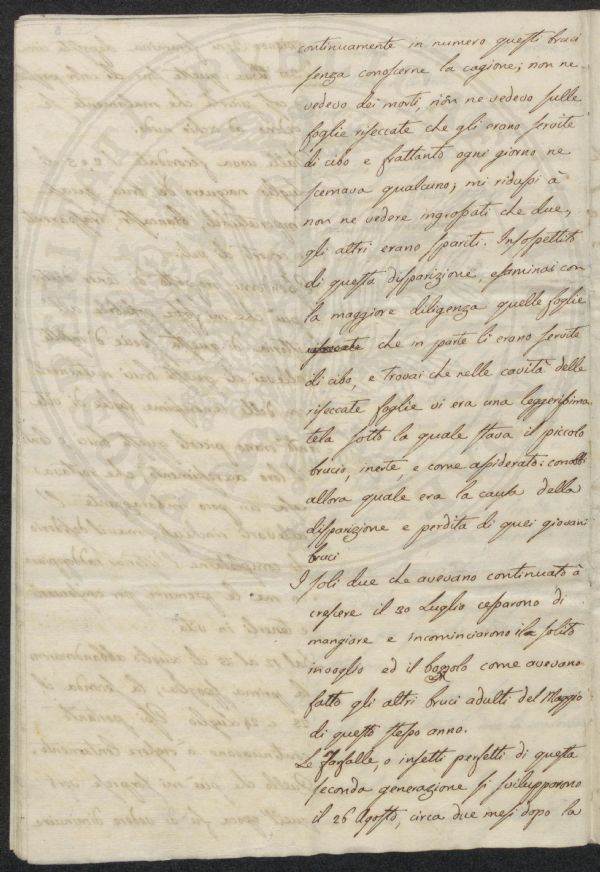 continuamente in numero questi bruci
senza conoscerne la cagione; non ne
vedevo dei morti, non ne vedevo sulle
foglie riseccate che gli erano servite
di cibo e frattanto ogni giorno ne
scemava qualcuno; mi ridussi à
non ne vedere ingrossati che due,
gli altri erano spariti. Insospettito
di questa disparizione, esaminai con
la maggiore diligenza quelle foglie
che in parte li erano servite
di cibo, e trovai che nelle cavità delle
riseccate foglie vi era una leggerissima
tela sotto la quale stava il piccolo
brucio, inerte, e come assiderato: conobbi
allora quale era la causa della
disparizione e perdita di quei giovani
bruci
I soli due che avevano continuato à
crescere il 20 Luglio cessarono di
mangiare e incominciarono il solito
invoglio ed il bozzolo come avevano
fatto gli altri bruci adulti del Maggio
di questo stesso anno.
Le Farfalle, o insetti perfetti di questa
seconda generazione si svilupparono
il 26 Agosto, circa due mesi dopo la